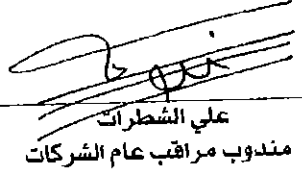 علي الشطرات
مندوب مراقب عام الشركات